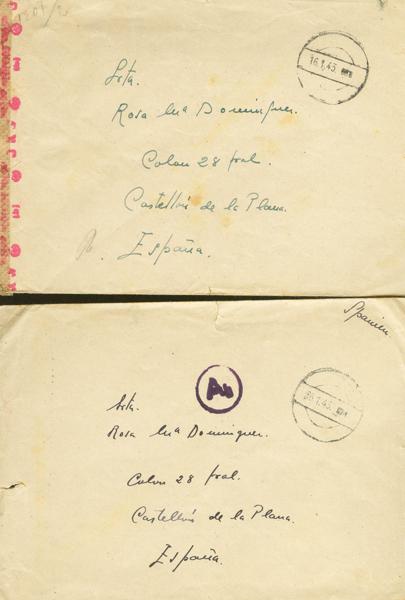 16.1.43.
Srta.
Rosa Mª Dominguez.
Colon 28 pral.
Castellón de la Plana.
España.
Spanien
An
26.1.43.
Srta.
Rosa Mª Dominguez.
Colon 28 pral.
Castellón de la Plana.
España.